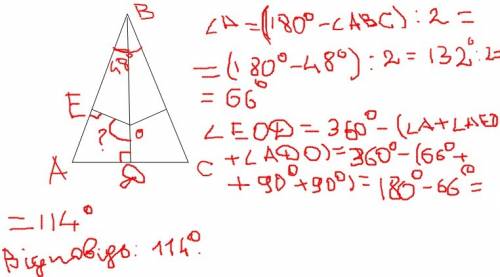 B
48°
E
?
O
A
D
C
∠A=(180°-∠ABC):2=
=(180°-48°):2=132°:2=
=66°
∠EOD=360°-(∠A+∠AEO
+∠ADO)=360°-(66°+
+90°+90°)=180°-66°=
=114°
Відповідь: 114°.